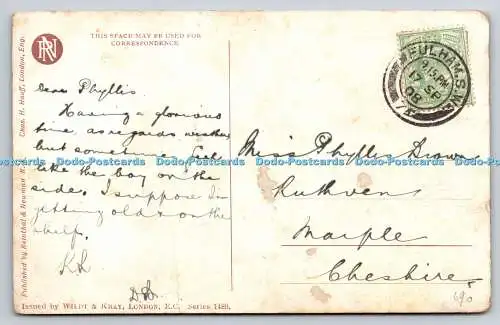 THIS SPACE MAY BE USED FOR
CORRESPONDENCE.
RN
Chas. H. Hauff, London, Eng.
Published by Reinthal & Newman
Dear Phyllis
Having a glorious
time, as regards
but sometimes feel
like the boy on the
side. I suppose I'm
getting old & on the
shelf.
FULHAM. S.W
9.15 PM
17 SP
08
Miss Phyllis Brown
Ruthven
Marple
Cheshire.
690
Issued by WILDT & KRAY, LONDON, E.C. Series 1489.
Dodo-Postcards Dodo-Postcards Dodo-Postcards Dodo-Postcards Dodo-Postcards